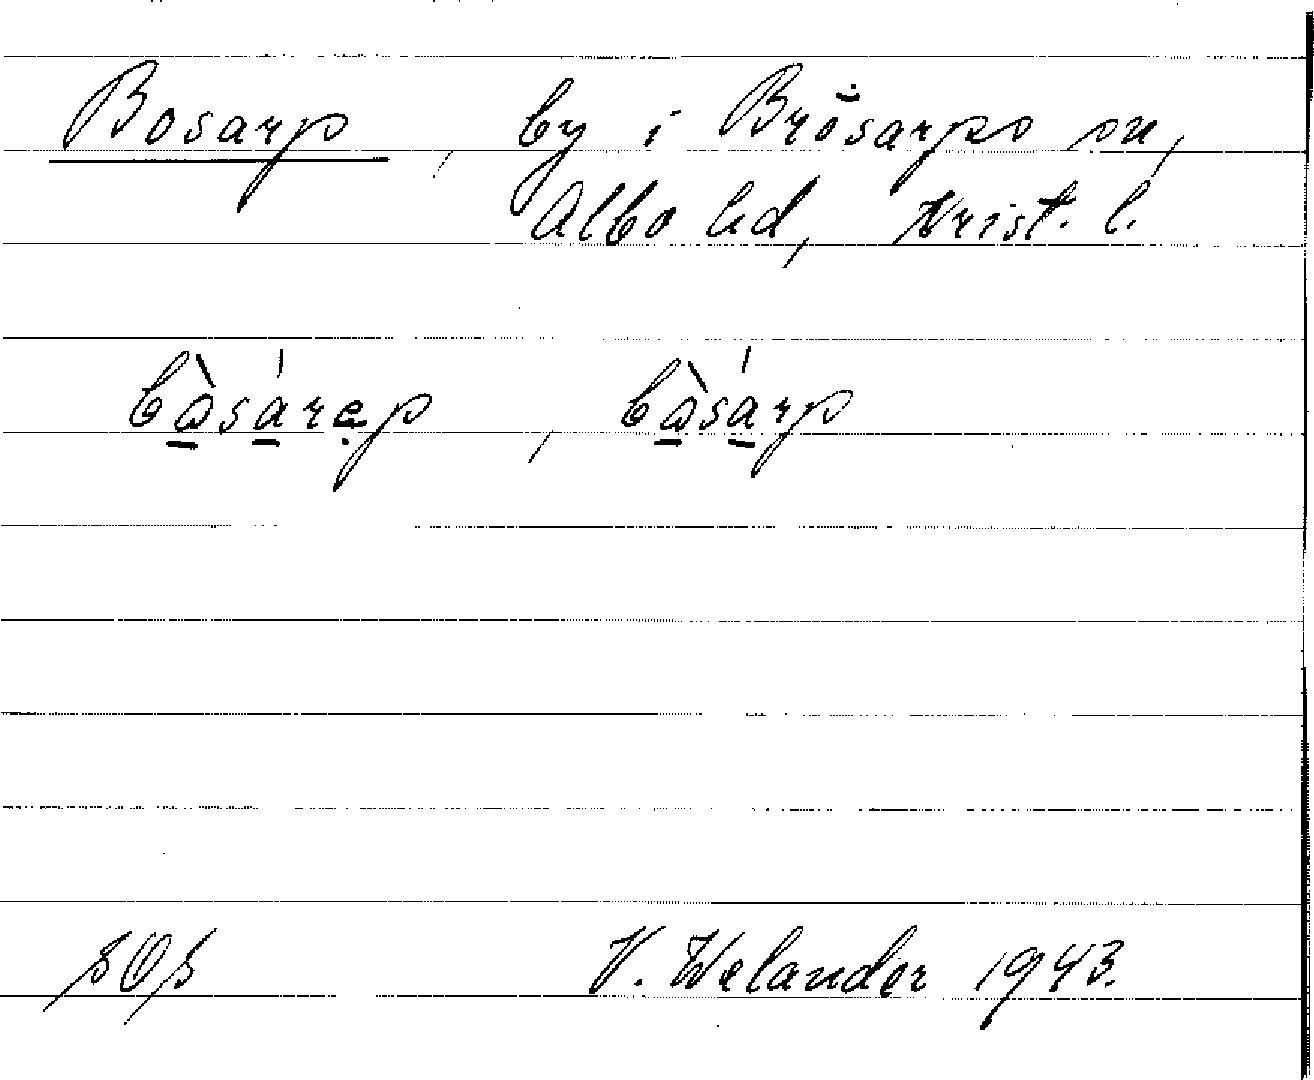 Bosarp, by i Brösarps sn,
Albo hd, Krist. l.
bòsárep, bòsárp
SOS V. Welander 1943.